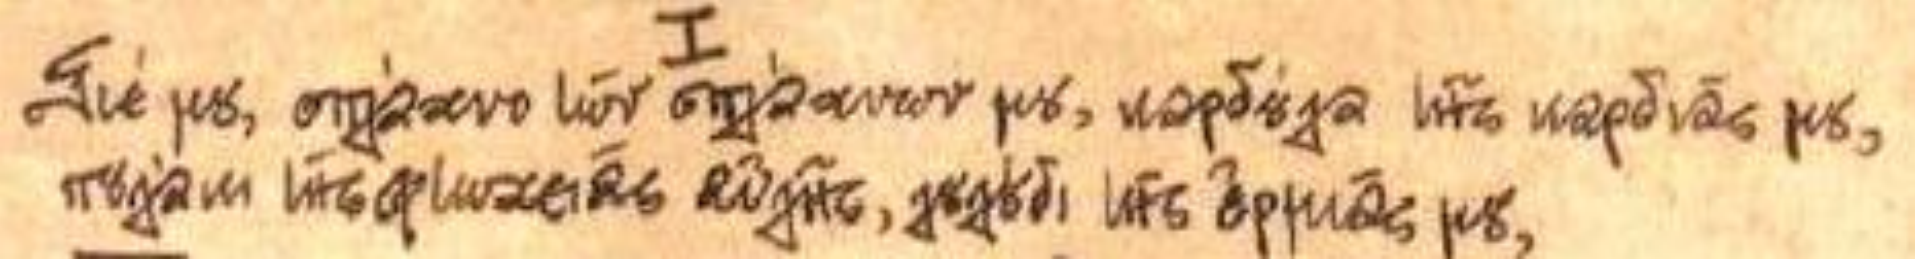 I
Γιέ μου, σπλάχνο τῶν σπλάχνων μου, καρδούλα τῆς καρδιᾶς μου,
πουλάκι τῆς φτωχειᾶς αὐλῆς, λουλούδι τῆς ἐρημιᾶς μου,